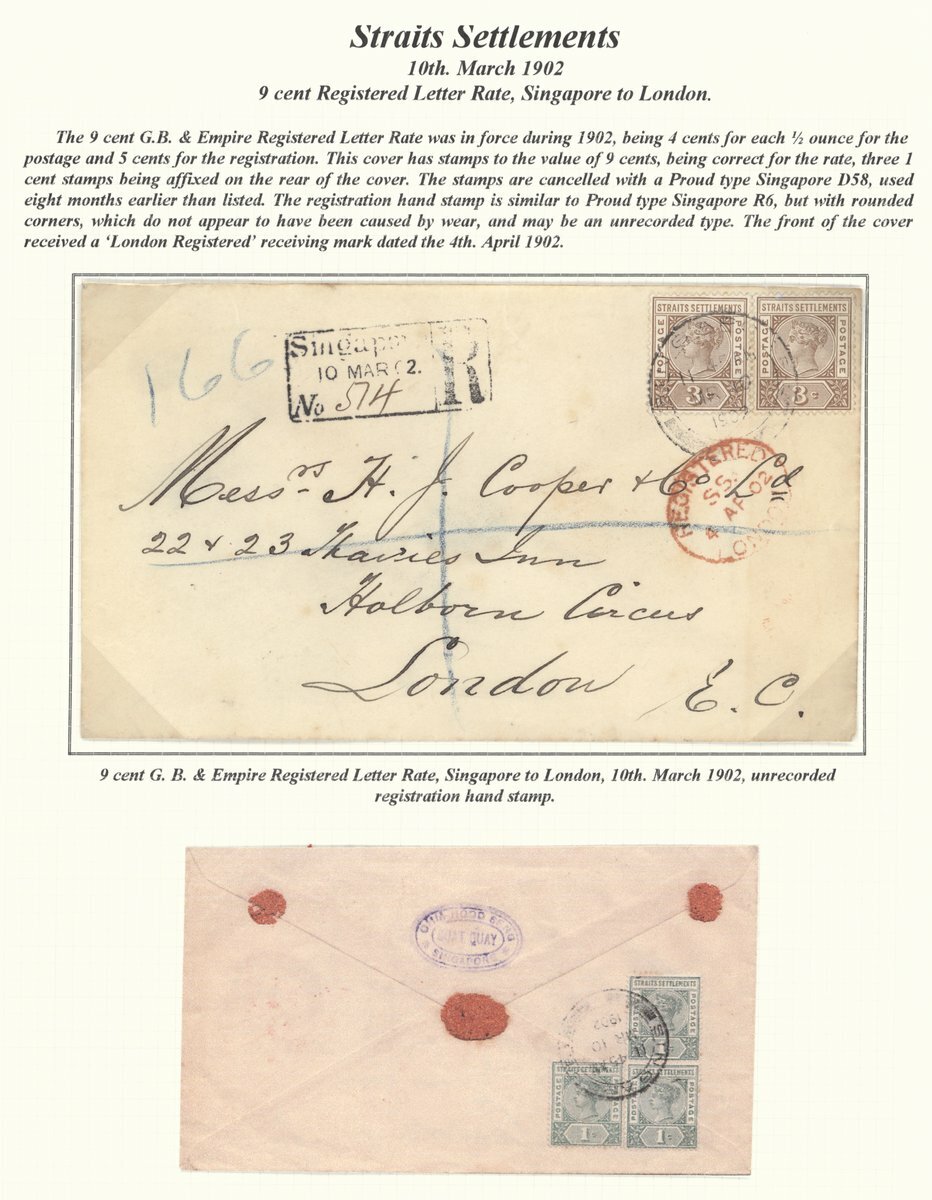 Straits Settlements
10th. March 1902
9 cent Registered Letter Rate, Singapore to London.
The 9 cent G.B. & Empire Registered Letter Rate was in force during 1902, being 4 cents for each ½ ounce for the
postage and 5 cents for the registration. This cover has stamps to the value of 9 cents, being correct for the rate, three 1
cent stamps being affixed on the rear of the cover. The stamps are cancelled with a Proud type Singapore D58, used
eight months earlier than listed. The registration hand stamp is similar to Proud type Singapore R6, but with rounded
corners, which do not appear to have been caused by wear, and may be an unrecorded type. The front of the cover
received a ‘London Registered’ receiving mark dated the 4th. April 1902.
166
Singapo
10 MAR 02.
No 514
R
STRAITS SETTLEMENTS
POSTAGE POSTAGE
3c
STRAITS SETTLEMENTS
POSTAGE POSTAGE
3c
REGISTERED
SS
4 AP 02
LONDON
Messrs H. J. Cooper & Co Ld
22 & 23 Thavies Inn
Holborn Circus
London E. C.
9 cent G. B. & Empire Registered Letter Rate, Singapore to London, 10th. March 1902, unrecorded
registration hand stamp.
BOAT QUAY
SINGAPORE
STRAITS SETTLEMENTS
POSTAGE POSTAGE
1c
1902
10
STRAITS SETTLEMENTS
POSTAGE POSTAGE
1c
STRAITS SETTLEMENTS
POSTAGE POSTAGE
1c